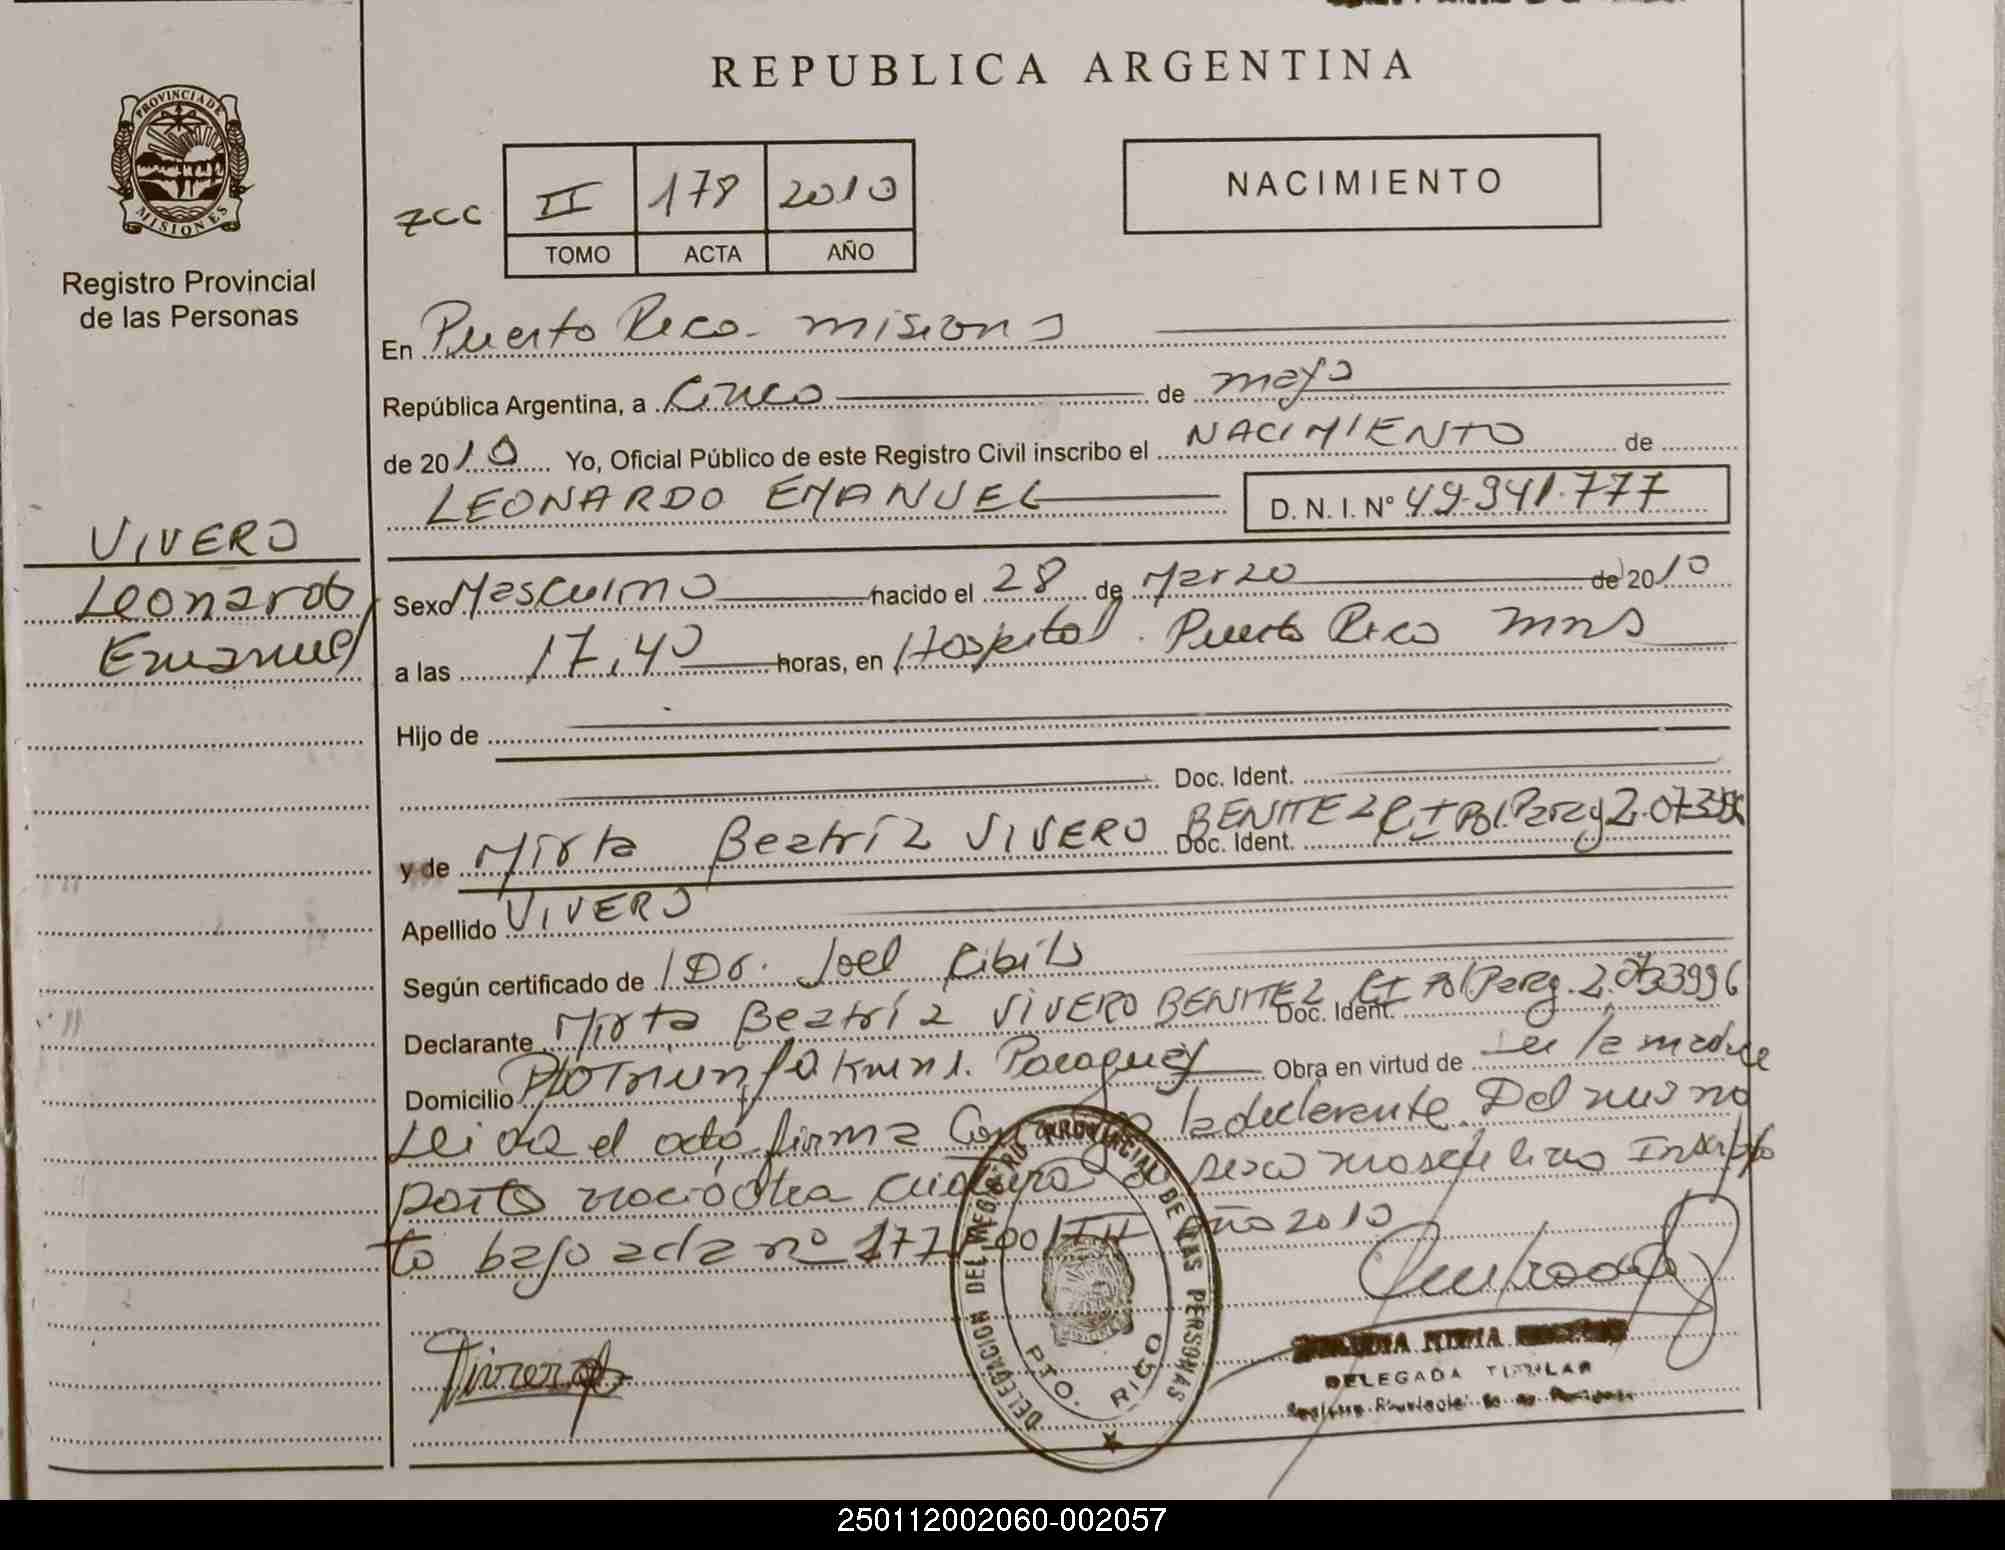 REPUBLICA ARGENTINA
PROVINCIA DE
MISIONES
Registro Provincial
de las Personas
zcc II 178 2010
TOMO ACTA AÑO
NACIMIENTO
En Puerto Rico - Misiones
República Argentina, a Cinco de mayo
de 2010 Yo, Oficial Público de este Registro Civil inscribo el NACIMIENTO de
LEONARDO EMANUEL D. N. I. Nº 49.941.777
VIVERO
Leonardo
Emanuel
Sexo Masculino nacido el 28 de Marzo de 2010
a las 17,40 horas, en Hospital. Puerto Rico mns
Hijo de
Doc. Ident.
y de Mirta Beatríz VIVERO BENITEZ Doc. Ident. CI Pol. Parag
Apellido VIVERO
Según certificado de Dr. Joel
Declarante Mirta Beatríz VIVERO BENITEZ Doc. Ident. CI Pol. Parg. 2.033996
Domicilio Pto Triunfo Km Paraguay Obra en virtud de Ser la madre
Leida el acta, firma la declarante. Del mismo
parto nació otra criatura de sexo masculino Inscripto
to bajo acta nº 177 año 2010
DELEGACION DEL REGISTRO PROVINCIAL DE LAS PERSONAS
MISIONES
PTO. RICO
DELEGADA TITULAR
Registro Provincial de las Personas
250112002060-002057